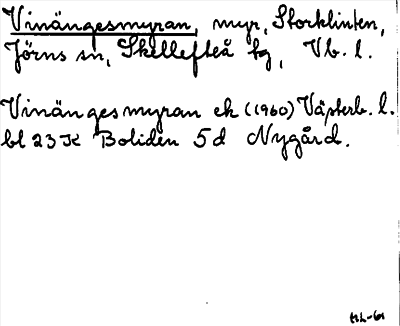 Vinängesmyran, myr, Storklinten,
Jörns sn, Skellefteå tg, Vb. l.
Vinängesmyran ek (1960) Västerb. l.
bl 23 K Boliden 5d Nygård.